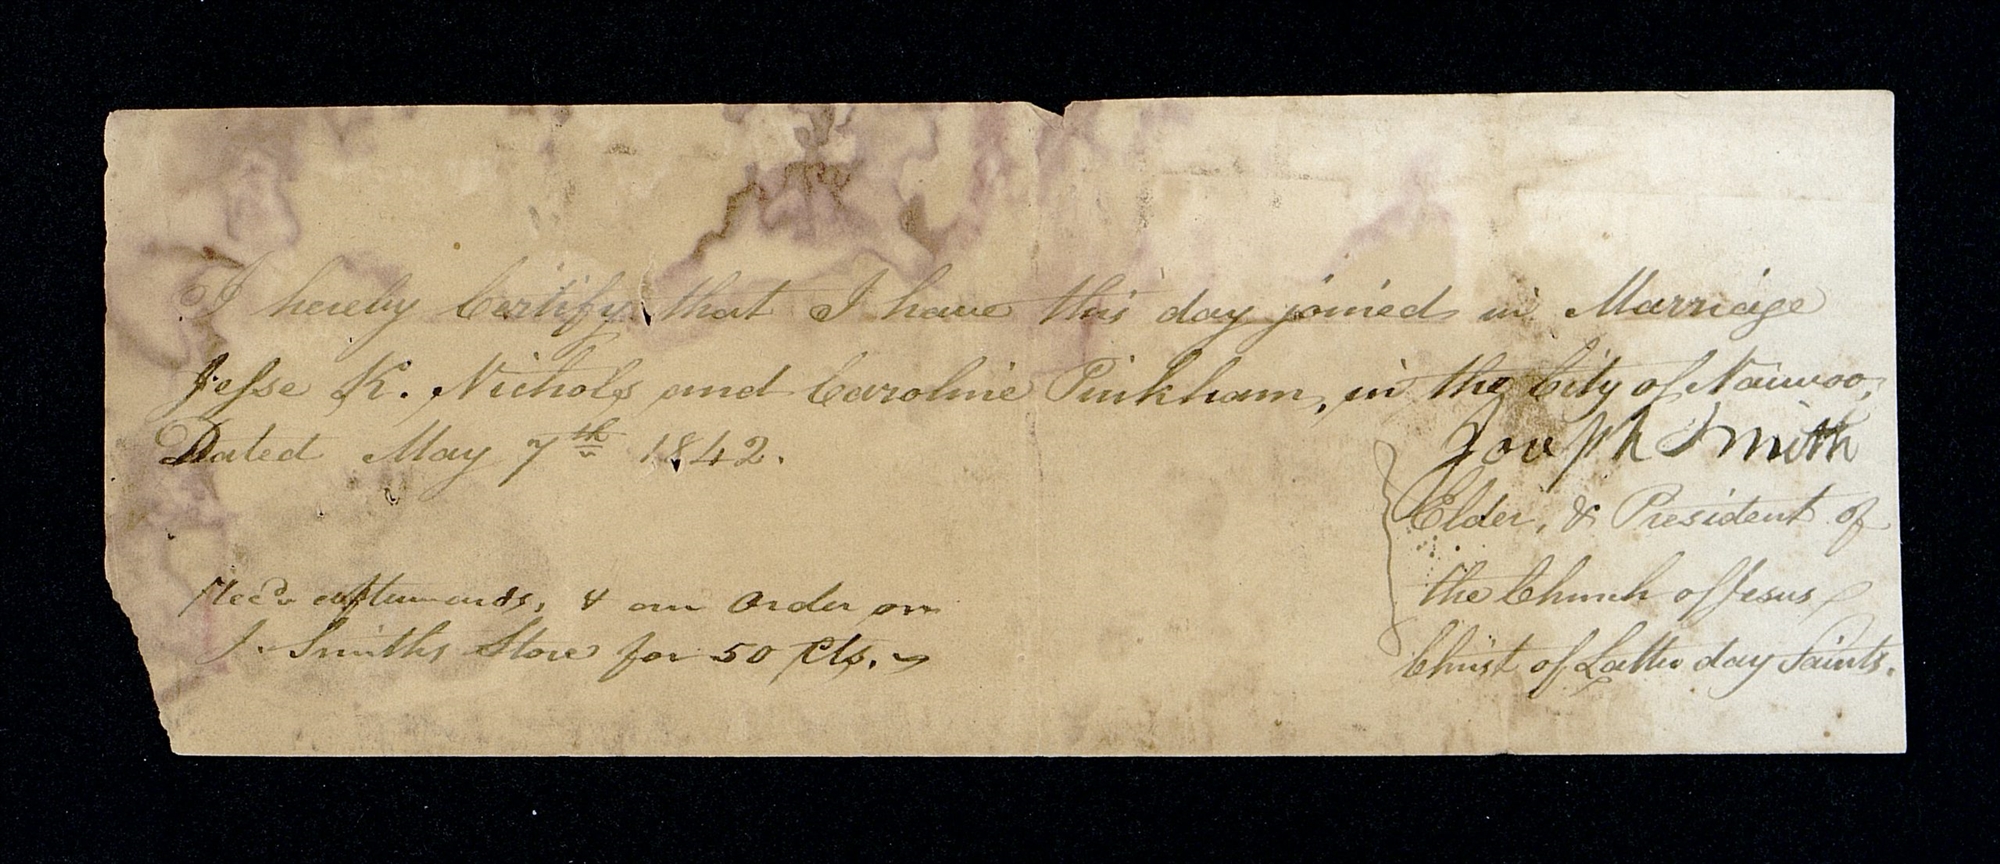 I hereby Certify that I have this day joined in Marriage
Jesse K. Nichols and Caroline Pinkham, in the City of Nauvoo,
Dated May 7th 1842.
Joseph Smith
Elder, & President of
the Church of Jesus
Christ of Latter day Saints.
Recd. afterwards, & an Order on
J. Smiths Store for 50 Cts.